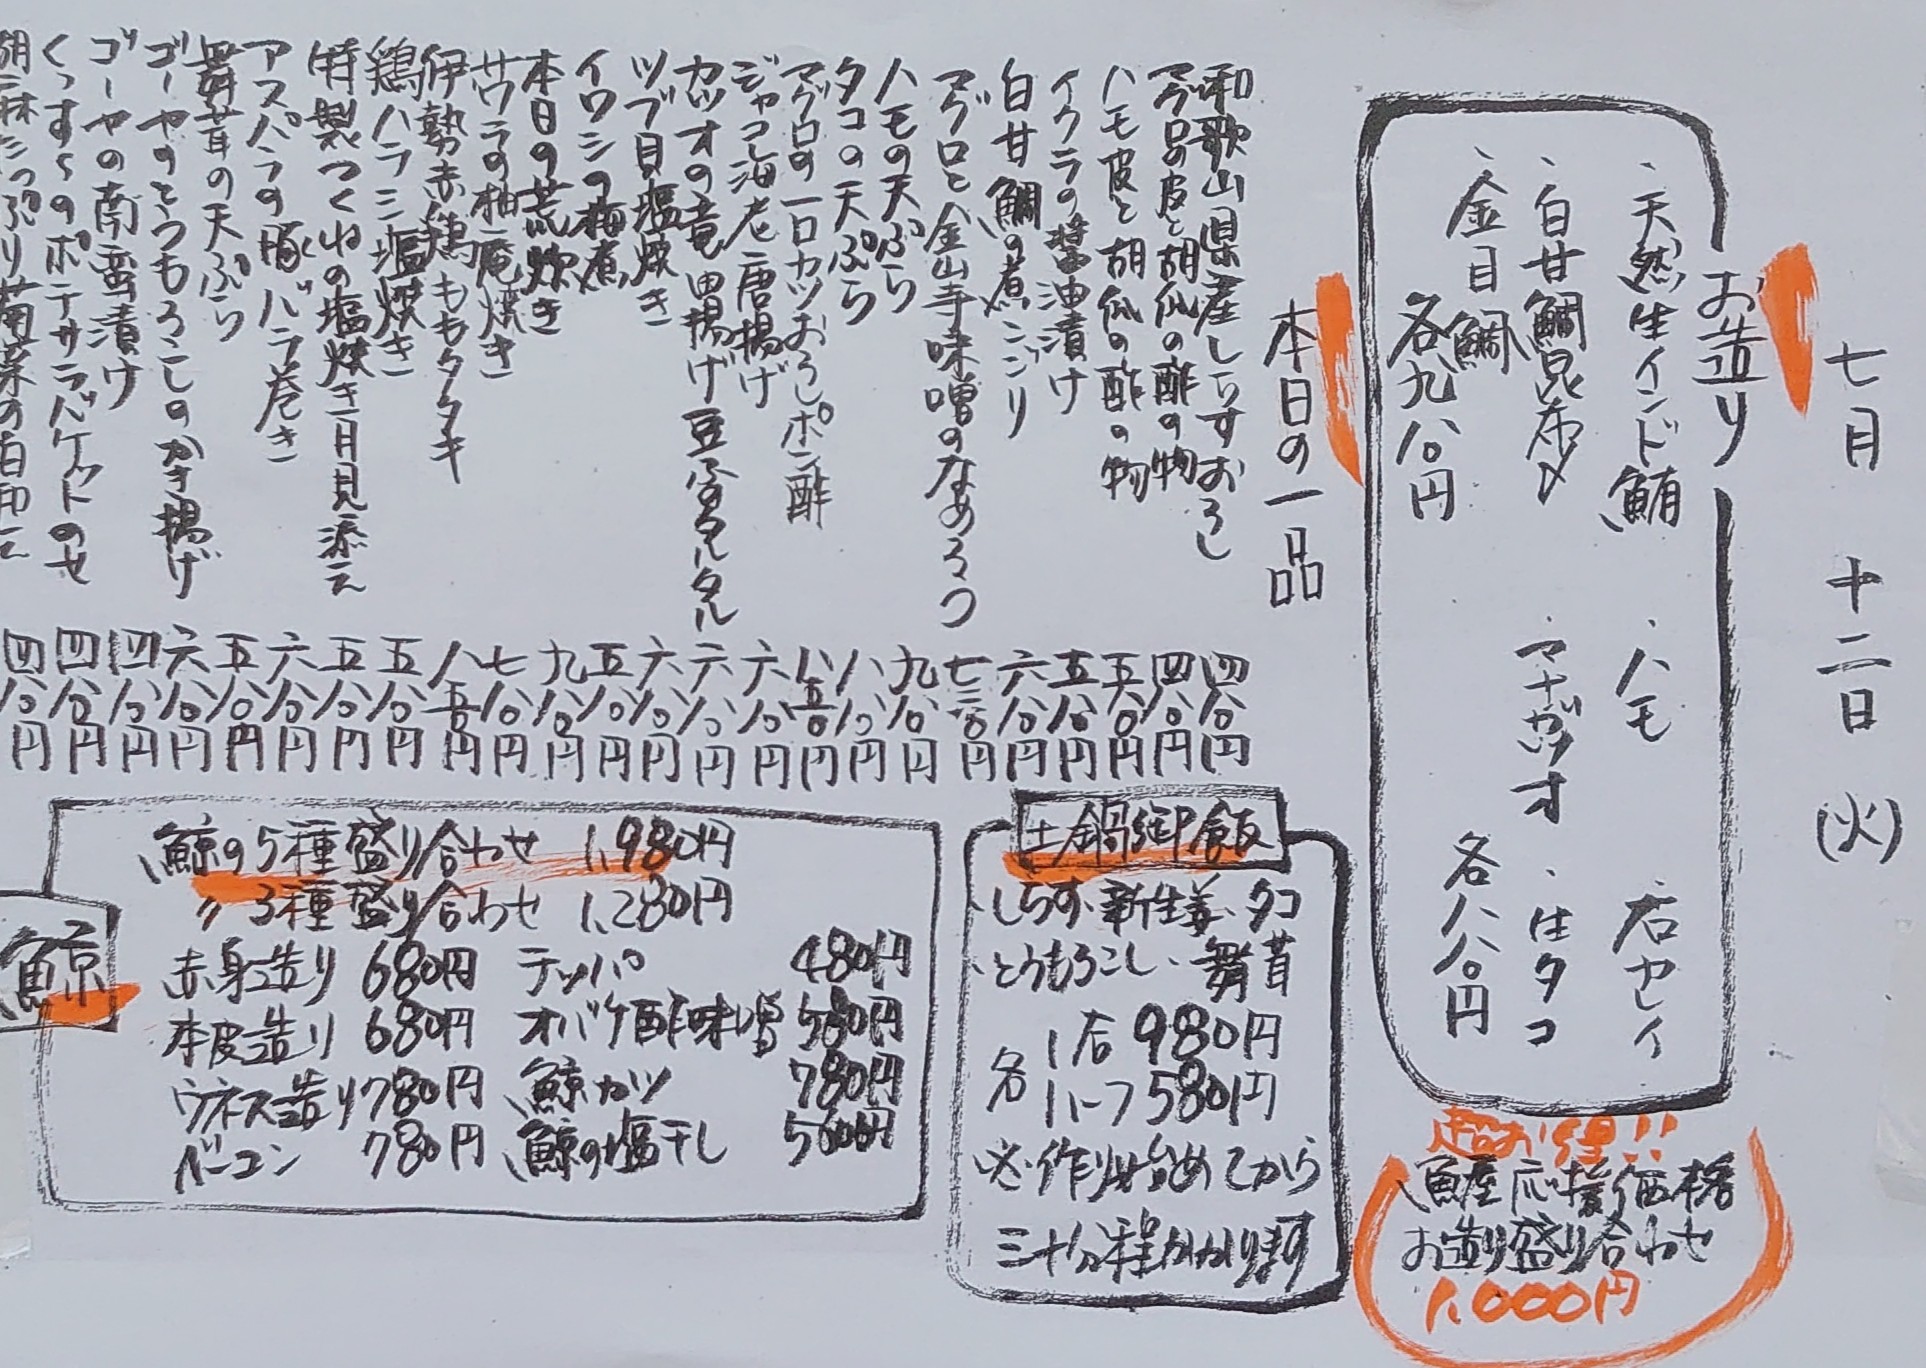 七月 十二日 (火)
お造り
・天然生インド鮪 ・ハモ 石ガレイ
・白甘鯛昆布〆 ・マナガツオ ・生タコ
・金目鯛
各九八〇円 各八八〇円
超お得!!
魚屋応援価格
お造り盛り合わせ
1,000円
本日の一品
和歌山県産しらすおろし 四八〇円
マグロの皮と胡瓜の酢の物 四八〇円
ハモ皮と胡瓜の酢の物 五八〇円
イクラの醤油漬け 五八〇円
白甘鯛の煮こごり 六八〇円
マグロと金山寺味噌のなめろう 七三〇円
ハモの天ぷら 九八〇円
タコの天ぷら 八八〇円
マグロの一口カツおろしポン酢 八五〇円
ジャコ海老唐揚げ 六八〇円
カツオの竜田揚げ豆腐タルタル 六八〇円
ツブ貝塩焼き 六八〇円
イワシの梅煮 五八〇円
本日の荒炊き 九八〇円
サワラの柚庵焼き 七八〇円
伊勢赤鶏ももタタキ 八五〇円
鶏ハラミ塩焼き 五八〇円
特製つくねの塩焼き月見添え 五八〇円
アスパラの豚バラ巻き 六八〇円
舞茸の天ぷら 五八〇円
ゴーヤのとうもろこしのかき揚げ 六八〇円
ゴーヤの南蛮漬け 四八〇円
くっすぅのポテサラバケットのせ 四八〇円
胡麻たっぷり菊菜の白和え 四八〇円
土鍋御飯
・しらす・新生姜・タコ
・とうもろこし・舞茸
各 1合 980円
ハーフ 580円
※作り始めてから
三十分程かかります
鯨
鯨の5種盛り合わせ 1,980円
〃 3種盛り合わせ 1,280円
赤身造り 680円 テッパ 480円
本皮造り 680円 オバケ酢味噌 580円
ウネス造り 780円 鯨カツ 780円
ベーコン 780円 鯨の塩干し 580円